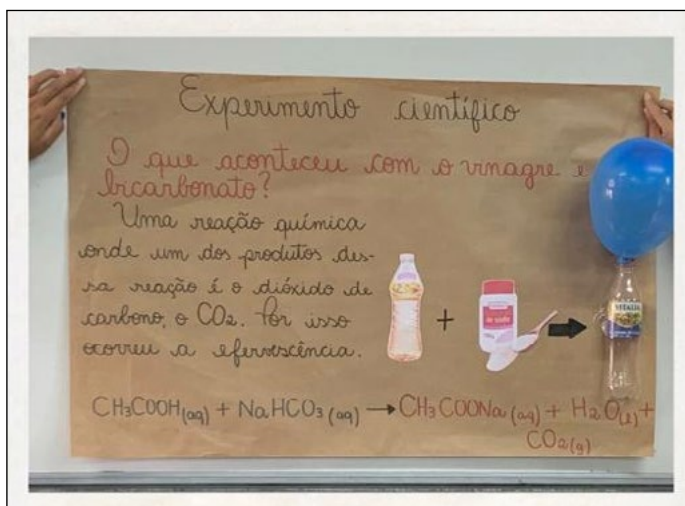 Experimento científico
O que aconteceu com o vinagre e
bicarbonato?
Uma reação química
onde um dos produtos des-
sa reação é o dióxido de
carbono, o CO2. Por isso
ocorreu a efervescência.
+
VITALIA
CH3COOH(aq) + NaHCO3 (aq) → CH3COONa (aq) + H2O(l) +
CO2(g)